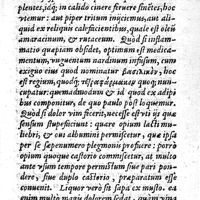 plentes, idq; in calido cinere feruere sinctei, hoc
vtemur: aut piper tritum inijciemus, aut ali-
quid ex reliquis calfacientibus, quale est oleū
amaracinum, aut rutaceum. Quòd si inflam-
matio quæpiam obsidet, optimum est medica-
mentum, vnguentum nardinum infusum, cum
exiguo eius quod nominatur βασιλικόν, hoc
est regium, quodq; nuncu-
patur: quemadmodum & id quod ex adipi
bus componitur, de quo paulo post loquemur.
Quòd si dolor vim fecerit, necesse est vti ijs quæ
sensum stupefaciunt: quare opium lacti mu-
liebri, & oui albumini permiscetur, quæ ipsa
per se sæpenumero plegmonis profuere: porrò
opium quoque castorio commiscetur, at multo
ante vsum tempore permistum siue pari pon-
dere, siue duplo castorio, præparatum esse
conuenit. Liquor verò sit sapa ex musto. ea
enim multò magis dolorem sedat, quàm vina